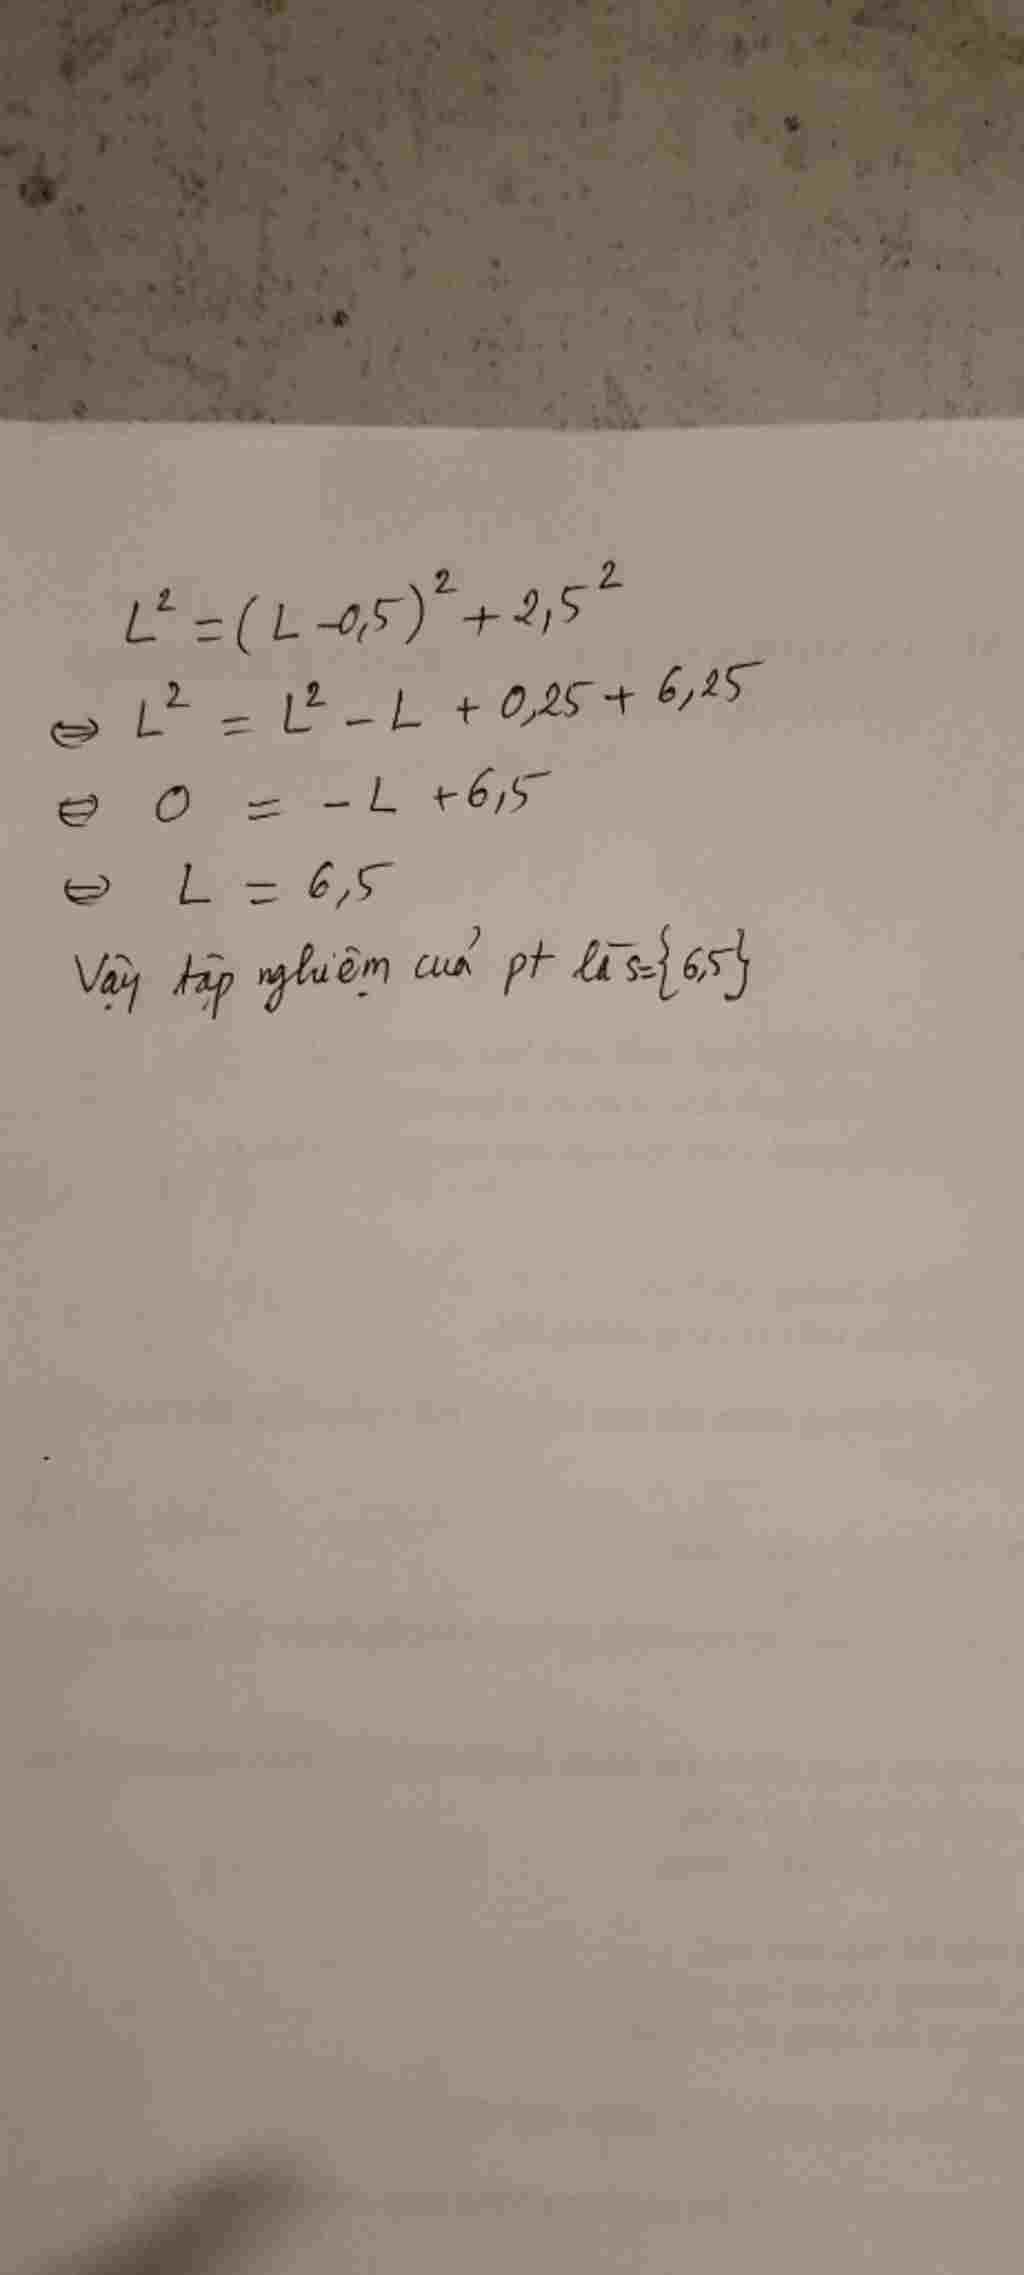 L² = (L - 0,5)² + 2,5²
⇔ L² = L² - L + 0,25 + 6,25
⇔ 0 = - L + 6,5
⇔ L = 6,5
Vậy tập nghiệm của pt là S={6,5}